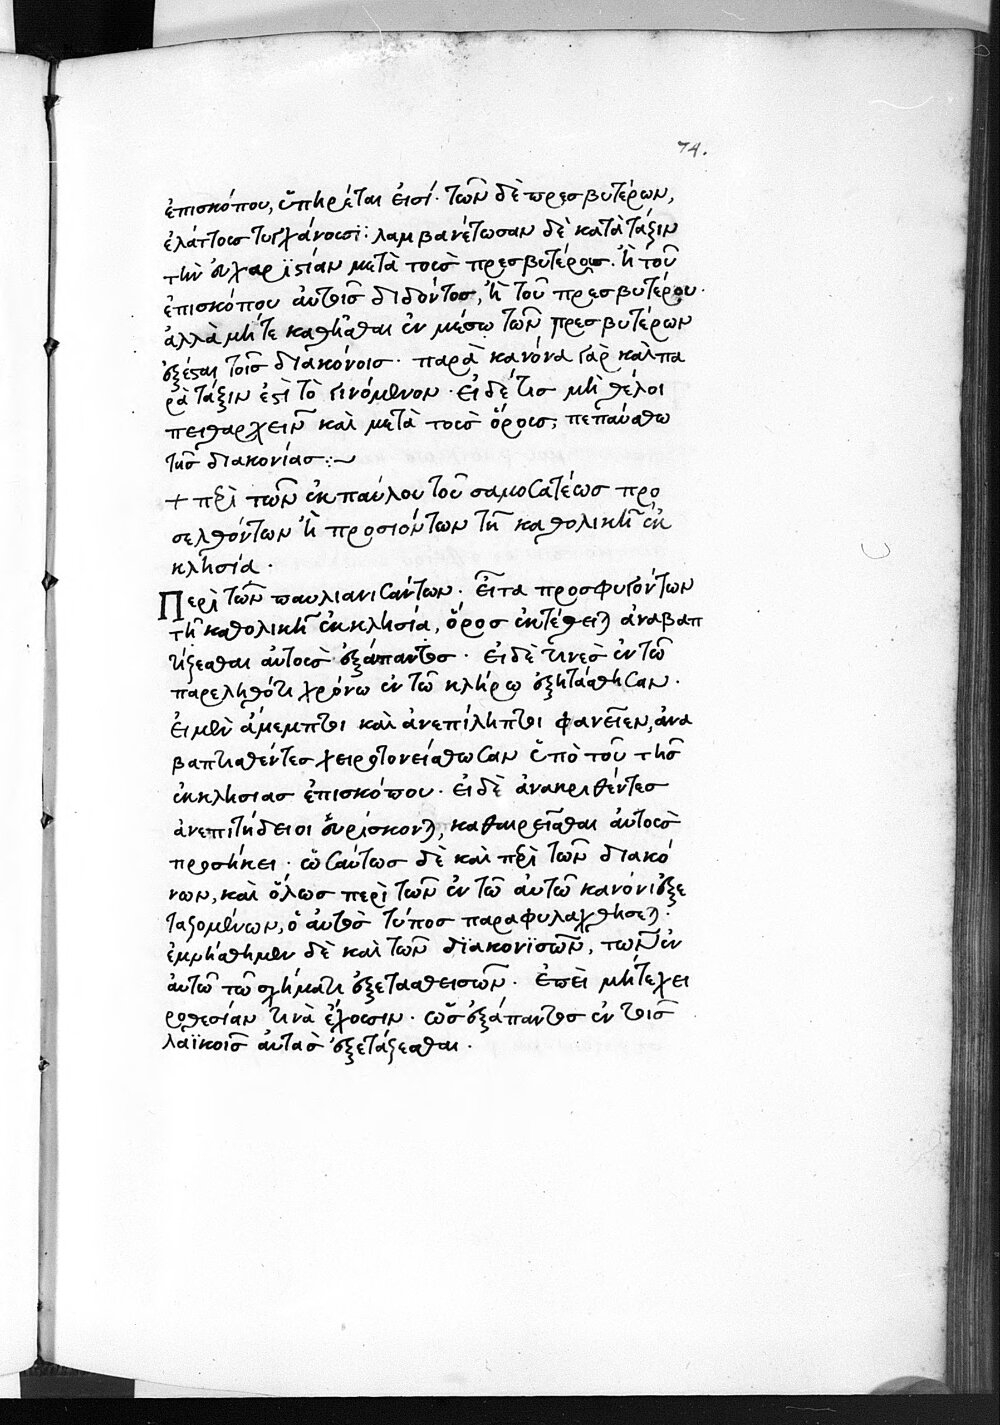 74.
ἐπισκόπου, ὑπηρέται εἰσί. τῶν δὲ πρεσβυτέρων,
ἐλάττους τυγχάνουσι: λαμβανέτωσαν δὲ κατὰ τάξιν
τὴν εὐχαριϊστίαν μετὰ τοὺς πρεσβυτέρους. ἢ τοῦ
ἐπισκόπου αὐτοῖς διδόντος, ἢ τοῦ πρεσβυτέρου.
ἀλλὰ μήτε καθῆσθαι ἐν μέσω τῶν πρεσβυτέρων
ἐξέσται τοῖς διακόνοις. παρὰ κανόνα γὰρ καὶ πα
ρὰ τάξιν ἐστὶ τὸ γινόμενον. εἰ δέ τις μὴ θέλοι
πειθαρχεῖν καὶ μετὰ τοὺς ὅρους, πεπαύσθω
τῆς διακονίας:~
+ περὶ τῶν ἐκ παύλου τοῦ σαμοσατέως προ
σελθόντων ἢ προσιόντων τῆ καθολικῆ ἐκ
κλησία.
Περὶ τῶν παυλιανισάντων. εἶτα προσφυγόντων
τῆ καθολικῆ ἐκκλησία, ὅρος ἐκτέθειται ἀναβαπ
τίζεσθαι αὐτοὺς ἐξάπαντος. εἰ δὲ τινὲς ἐν τῶ
παρεληθότι χρόνω ἐν τῶ κλήρω ἐξητάσθησαν.
εἰ μὲν ἄμεμπτοι καὶ ἀνεπίληπτοι φανεῖεν, ἀνα
βαπτισθέντες χειροτονείσθωσαν ὑπὸ τοῦ τῆς
ἐκκλησιας ἐπισκόπου. εἰ δὲ ἀνακριθέντες
ἀνεπιτήδειοι εὑρίσκονται, καθαιρεῖσθαι αὐτοὺς
προσήκει. ὡσαύτως δὲ καὶ περὶ τῶν διακό
νων, καὶ ὅλως περὶ τῶν ἐν τῶ αὐτῶ κανόνι ἐξε
ταζομένων, ὁ αὐτὸς τύπος παραφυλαχθήσεται.
ἐμνήσθημεν δὲ καὶ τῶν διακονϊσσῶν, τῶν ἐν
αὐτῶ τῶ σχήματι ἐξετασθεισῶν. ἐπεὶ μήτε χει
ροθεσίαν τινὰ ἔχουσιν. ὡς ἐξάπαντος ἐν τοῖς
λαϊκοῖς αὐτὰς ἐξετάζεσθαι.